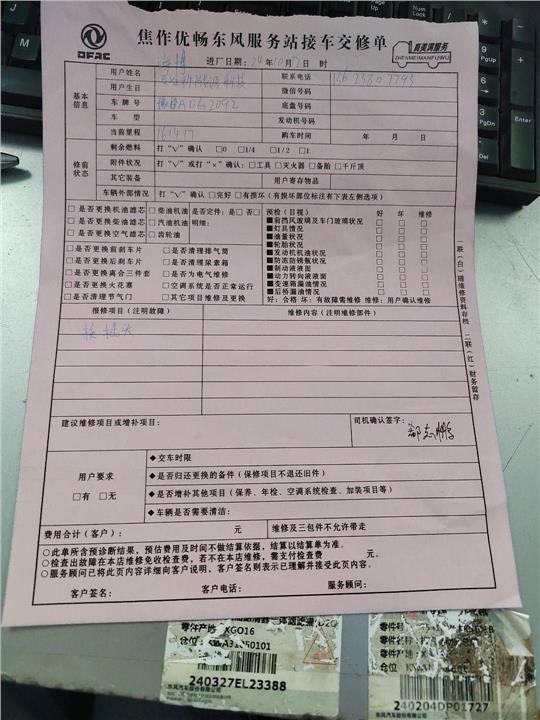 DFAC
焦作优畅东风服务站接车交修单
真美满服务
ZHENMEIMANFUWU
进厂日期：24年10月12日 时
基本信息
用户姓名
联系电话
用户生日
微信号码
车牌号
底盘号码
车型
发动机号码
当前里程
购车时间 年 月 日
修前状态
剩余燃料 打“√”确认 □0 □1/4 □1/2 □1
附件状况 打“√”或打“×”确认：□工具 □灭火器 □备胎 □千斤顶
其它装备 用户寄存物品
车辆外部情况 打“√”确认 □完好 □有损坏（有损坏部位标注有下表左侧选项）
□是否更换机油滤芯 □柴油机油 是否定件：是 □否□
□是否更换柴油滤芯 □汽油机油 明细：
□是否更换空气滤芯 □齿轮油
□是否更换前刹车片 □是否清理排气筒
□是否更换后刹车片 □是否清理尿素箱
□是否更换离合三件套 □是否为电气维修
□是否更换火花塞 □空调系统是否正常运行
□是否清理节气门 □其它项目维修及更换
预检（目视） 好 坏 维修
■前挡风玻璃及车门玻璃状况 □ □ □
■灯具情况 □ □ □
■油量状况 □ □ □
■轮胎状况 □ □ □
■发动机机油状况 □ □ □
■防冻防锈瓶状况 □ □ □
■制动液液面 □ □ □
■动力转向液液面 □ □ □
■变速箱漏油情况 □ □ □
■后桥漏油情况 □ □ □
好：合格 坏：有故障需维修 维修：用户确认维修
报修项目（注明故障） 维修内容（注明维修部件）
建议维修项目或增补项目：
司机确认签字：
用户要求
□有 □无
◆交车时限
◆是否归还更换的备件（保修项目不退还旧件）
◆是否增补其他项目（保养、年检、空调系统检查、加装项目等）
◆车辆是否需要清洁：
费用合计（客户）： 元 维修及三包件不允许带走
○此单所含预诊断结果，预估费用及时间不做结算依据，结算以结算单为准。
○检查出故障在本店维修免收检查费，若不在本店维修，需支付检查费 元。
○服务顾问已将此页内容详细向客户说明，客户签名则表示已理解并接受此页内容。
客户签名： 客户电话： 服务顾问：
一联（白）随维修资料存档 二联（红）财务留存
零件产地 XGO16
仓位
240327EL23388
东风汽车股份有限公司
零件号
零件名称
零件产地
仓位
240204DP01727
东风汽车股份有限公司
PgUp
PgDn
End
Enter